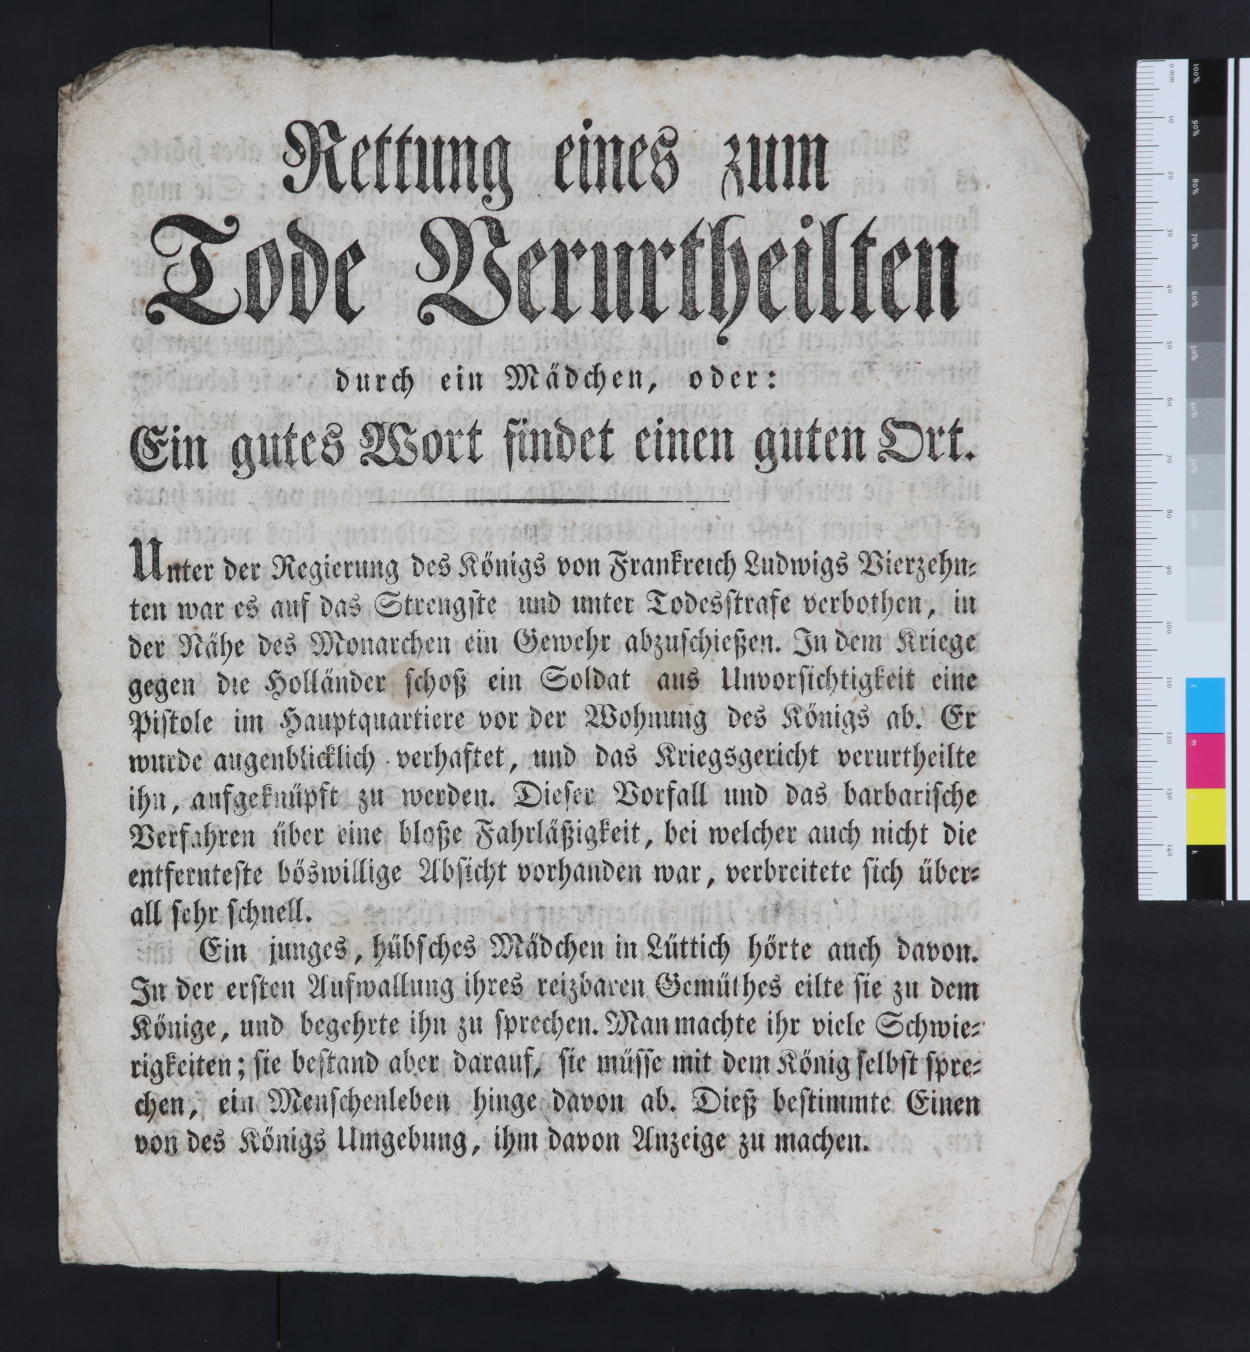 Rettung eines zum
Tode Verurtheilten
durch ein Mädchen, oder:
Ein gutes Wort findet einen guten Ort.
Unter der Regierung des Königs von Frankreich Ludwigs Vierzehn-
ten war es auf das Strengste und unter Todesstrafe verbothen, in
der Nähe des Monarchen ein Gewehr abzuschießen. In dem Kriege
gegen die Holländer schoß ein Soldat aus Unvorsichtigkeit eine
Pistole im Hauptquartiere vor der Wohnung des Königs ab. Er
wurde augenblicklich verhaftet, und das Kriegsgericht verurtheilte
ihn, aufgeknüpft zu werden. Dieser Vorfall und das barbarische
Verfahren über eine bloße Fahrläßigkeit, bei welcher auch nicht die
entfernteste böswillige Absicht vorhanden war, verbreitete sich über-
all sehr schnell.
Ein junges, hübsches Mädchen in Lüttich hörte auch davon.
In der ersten Aufwallung ihres reizbaren Gemüthes eilte sie zu dem
Könige, und begehrte ihn zu sprechen. Man machte ihr viele Schwie-
rigkeiten; sie bestand aber darauf, sie müsse mit dem König selbst spre-
chen, ein Menschenleben hinge davon ab. Dieß bestimmte Einen
von des Königs Umgebung, ihm davon Anzeige zu machen.